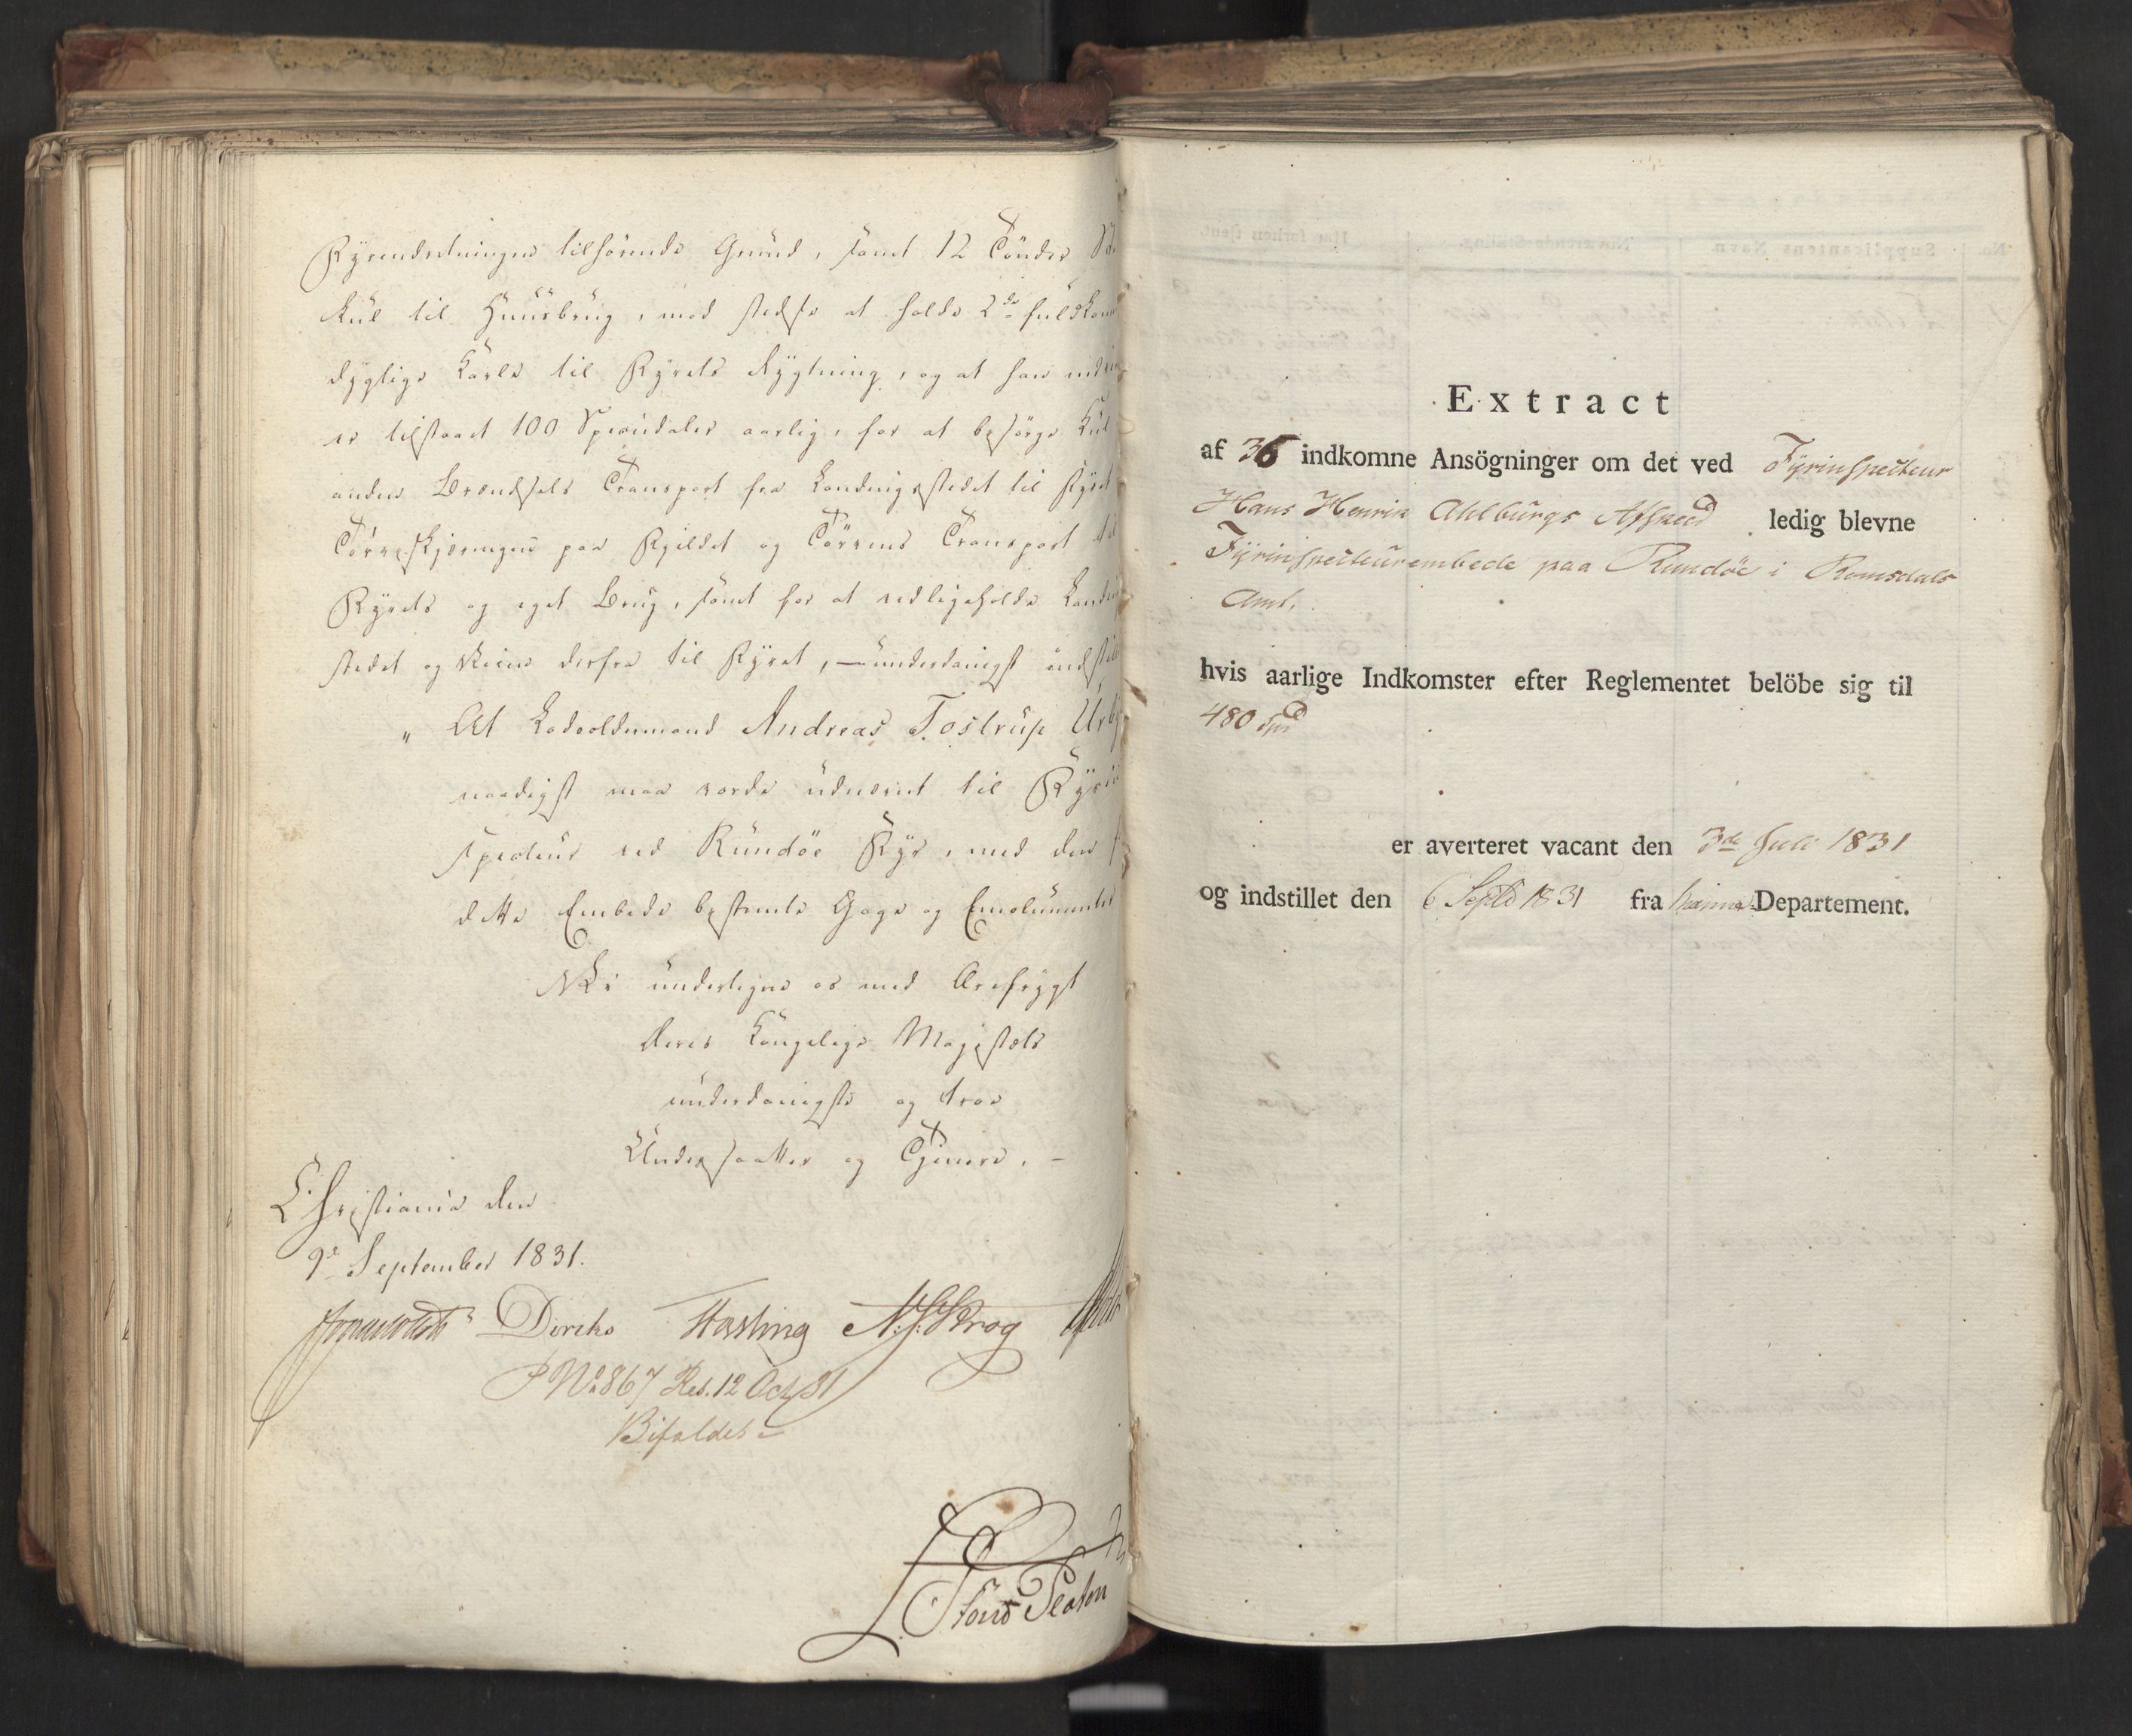 Fyrindretningen tilhörende Grund, samt 12 Tönder
Kul til Huusbrug, mod stedse at holde 2de fuldkom
dygtige Karle til Fyrets Rygtning, og at han
er tilstaaet 100 Speciedaler aarlig, for at besörge Kul
anden Brændsels Transport fra Landingsstedet til Fyret
Törveskjæringen paa Fjeldet og Törvens Transport til
Fyrets og eget Brug, samt for at vedligeholde Landings
stedet og Veien derfra til Fyret, — underdanigst indstille
„ At Lodsoldermand Andreas Tostrup Urb
naadigst maa vorde udnævnt til Fyrin
specteur ved Rundöe Fyr, med den f
dette Embede bestemte Gage og Emolumenter
Vi undertegne os med Ærefrygt
Deres Kongelige Majestæts
underdanigste og troe
Undersaatter og Tjenere. –
Christiania den
9de September 1831.
Diriks Hasting N. J. Krog
P No 867 Res. 12 Oct 31
Bifaldes
Extract
af 36 indkomne Ansögninger om det ved Fyrinspecteur
Hans Henrik Ahlburgs Afskeed ledig blevne
Fyrinspecteurembede paa Rundöe i Romsdals
Amt,
hvis aarlige Indkomster efter Reglementet belöbe sig til
480 Spd
er averteret vacant den 3de Juli 1831
og indstillet den 6 Septb 1831 fra Marine Departement.